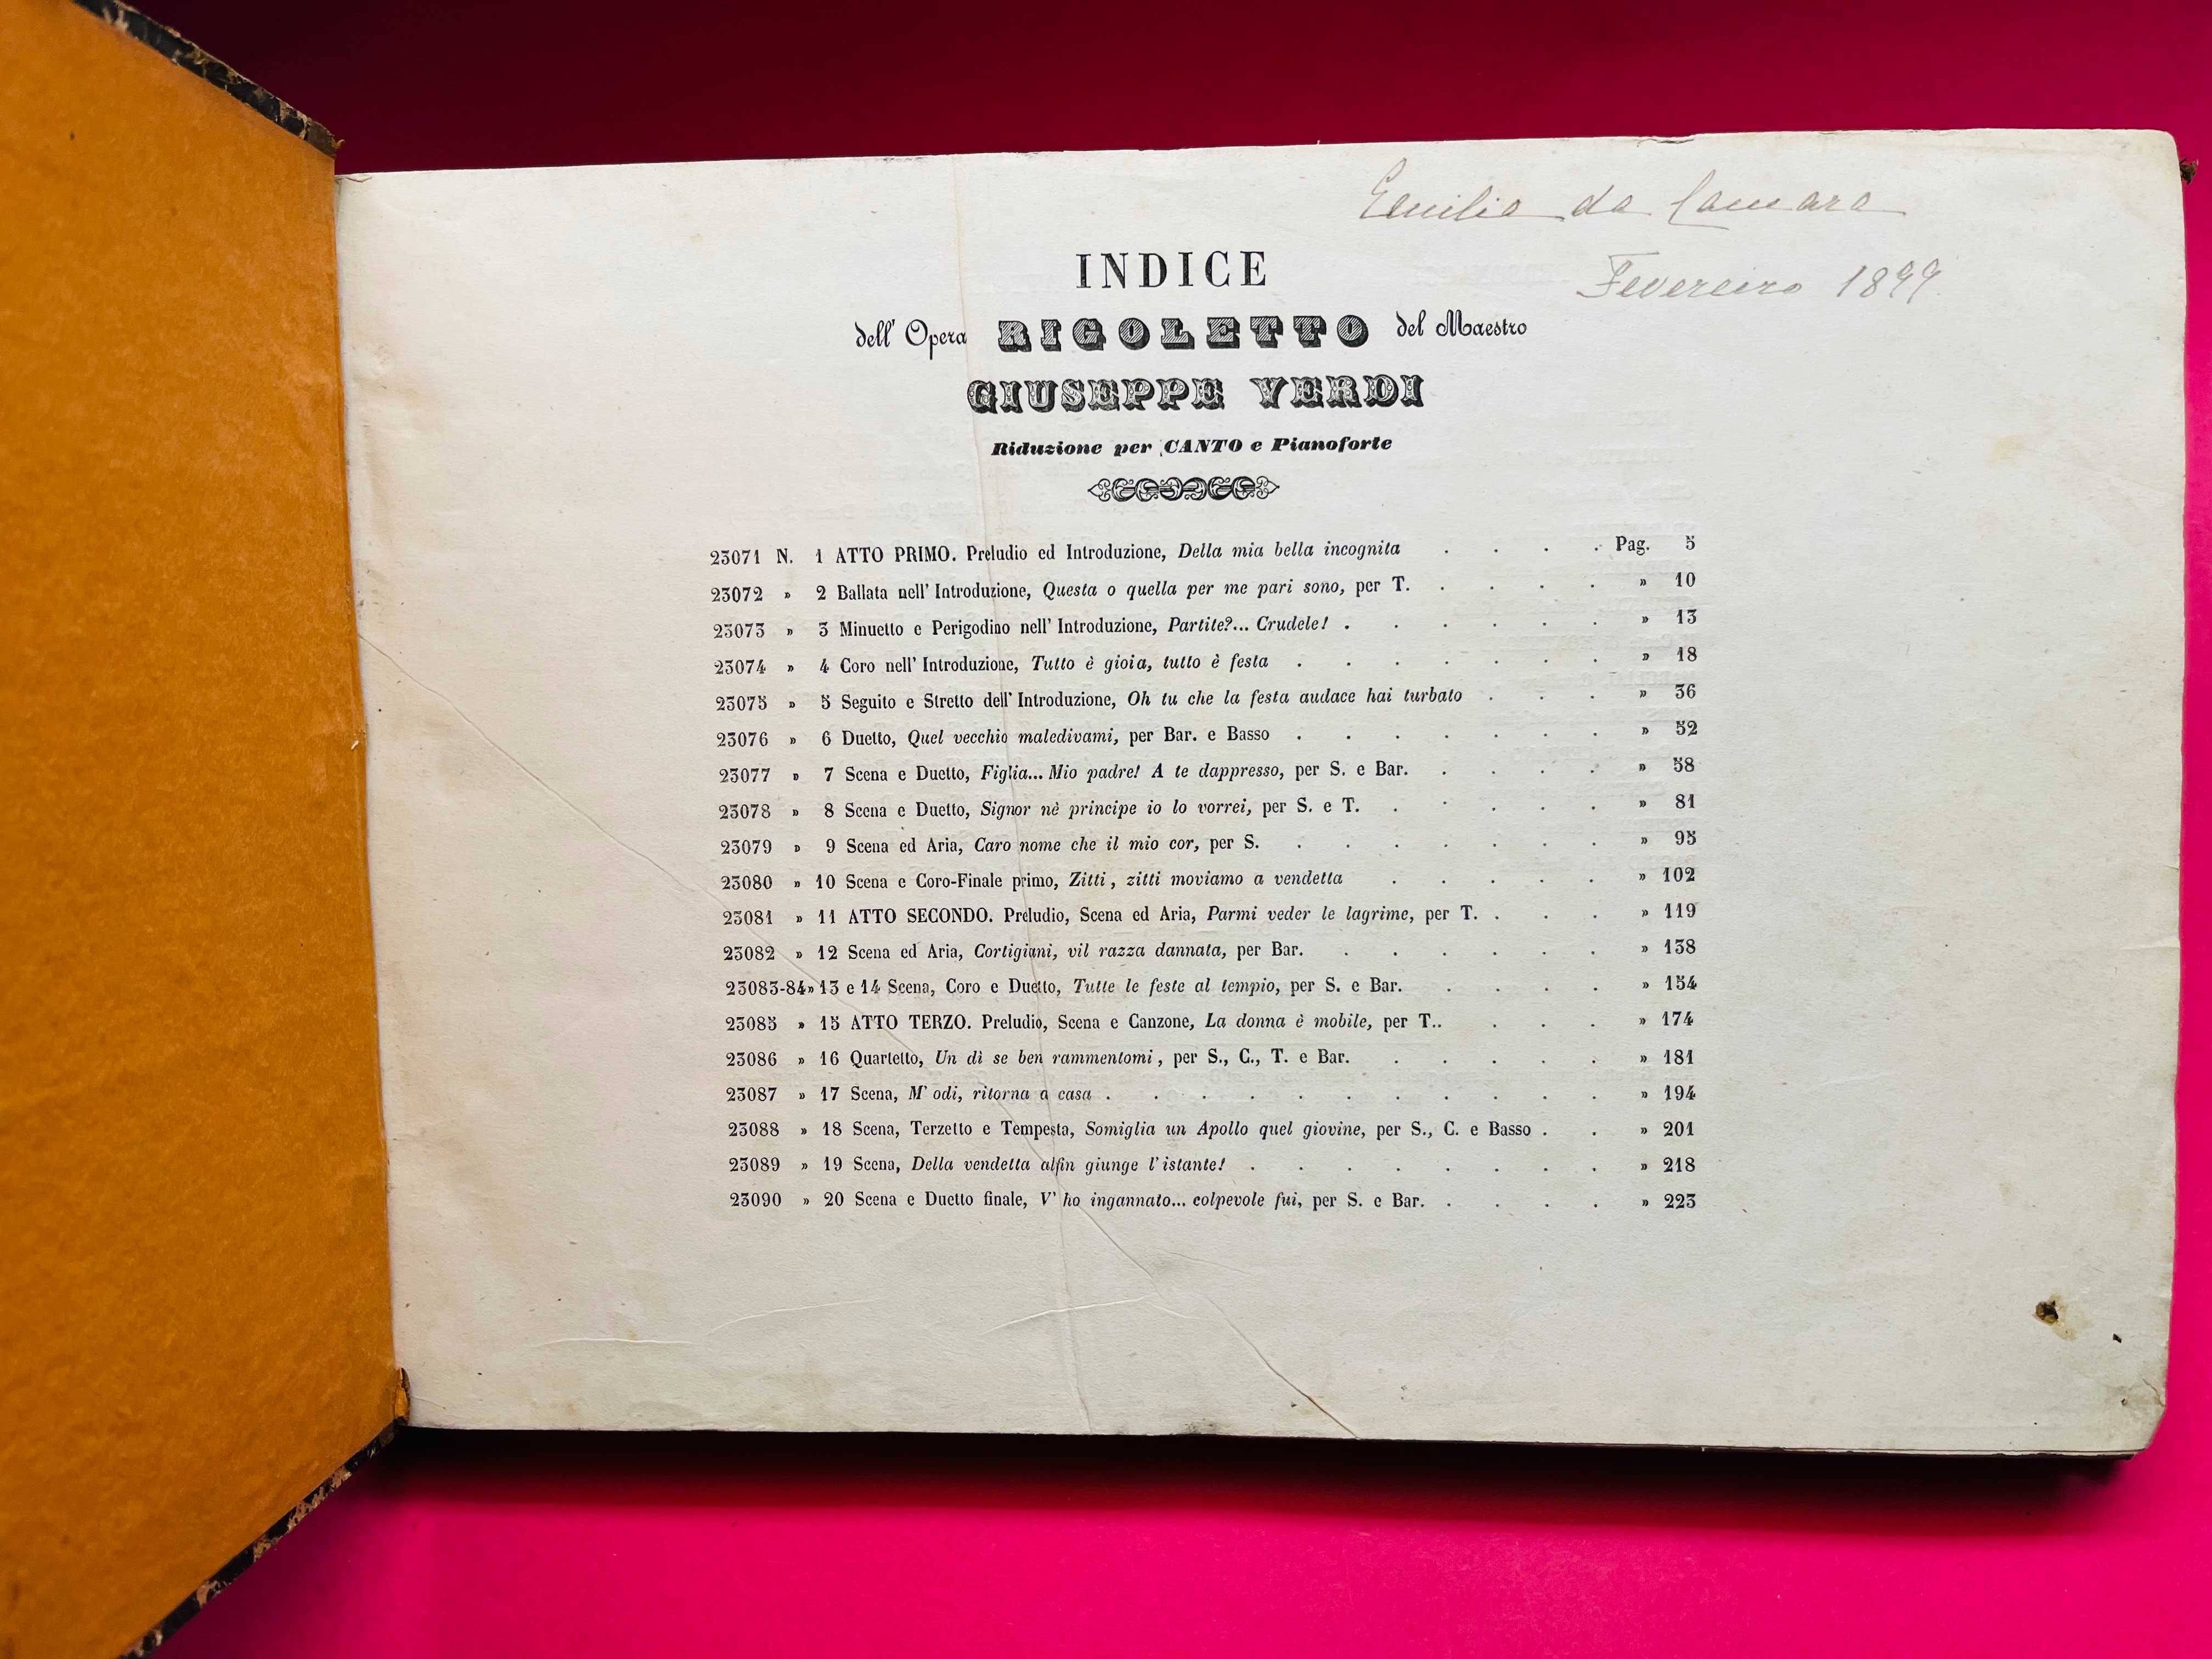 Emilia da Camara
Fevereiro 1899
INDICE
dell' Opera RIGOLETTO del Maestro
GIUSEPPE VERDI
Riduzione per CANTO e Pianoforte
23071 N. 1 ATTO PRIMO. Preludio ed Introduzione, Della mia bella incognita . . . . Pag. 5
23072 » 2 Ballata nell' Introduzione, Questa o quella per me pari sono, per T. . . . . » 10
23073 » 3 Minuetto e Perigodino nell' Introduzione, Partite?... Crudele! . . . . . . » 13
23074 » 4 Coro nell' Introduzione, Tutto è gioia, tutto è festa . . . . . . . » 18
23075 » 5 Seguito e Stretto dell' Introduzione, Oh tu che la festa audace hai turbato . . . » 36
23076 » 6 Duetto, Quel vecchio maledivami, per Bar. e Basso . . . . . . . » 52
23077 » 7 Scena e Duetto, Figlia... Mio padre! A te dappresso, per S. e Bar. . . . . » 58
23078 » 8 Scena e Duetto, Signor nè principe io lo vorrei, per S. e T. . . . . . » 81
23079 » 9 Scena ed Aria, Caro nome che il mio cor, per S. . . . . . . . » 95
23080 » 10 Scena e Coro-Finale primo, Zitti, zitti moviamo a vendetta . . . . . » 102
23081 » 11 ATTO SECONDO. Preludio, Scena ed Aria, Parmi veder le lagrime, per T. . . . » 119
23082 » 12 Scena ed Aria, Cortigiani, vil razza dannata, per Bar. . . . . . . » 138
23083-84 » 13 e 14 Scena, Coro e Duetto, Tutte le feste al tempio, per S. e Bar. . . . . » 154
23085 » 15 ATTO TERZO. Preludio, Scena e Canzone, La donna è mobile, per T.. . . . » 174
23086 » 16 Quartetto, Un dì se ben rammentomi, per S., C., T. e Bar. . . . . . » 181
23087 » 17 Scena, M' odi, ritorna a casa . . . . . . . . . . . » 194
23088 » 18 Scena, Terzetto e Tempesta, Somiglia un Apollo quel giovine, per S., C. e Basso . . » 201
23089 » 19 Scena, Della vendetta alfin giunge l'istante! . . . . . . . . » 218
23090 » 20 Scena e Duetto finale, V' ho ingannato... colpevole fui, per S. e Bar. . . . . » 223